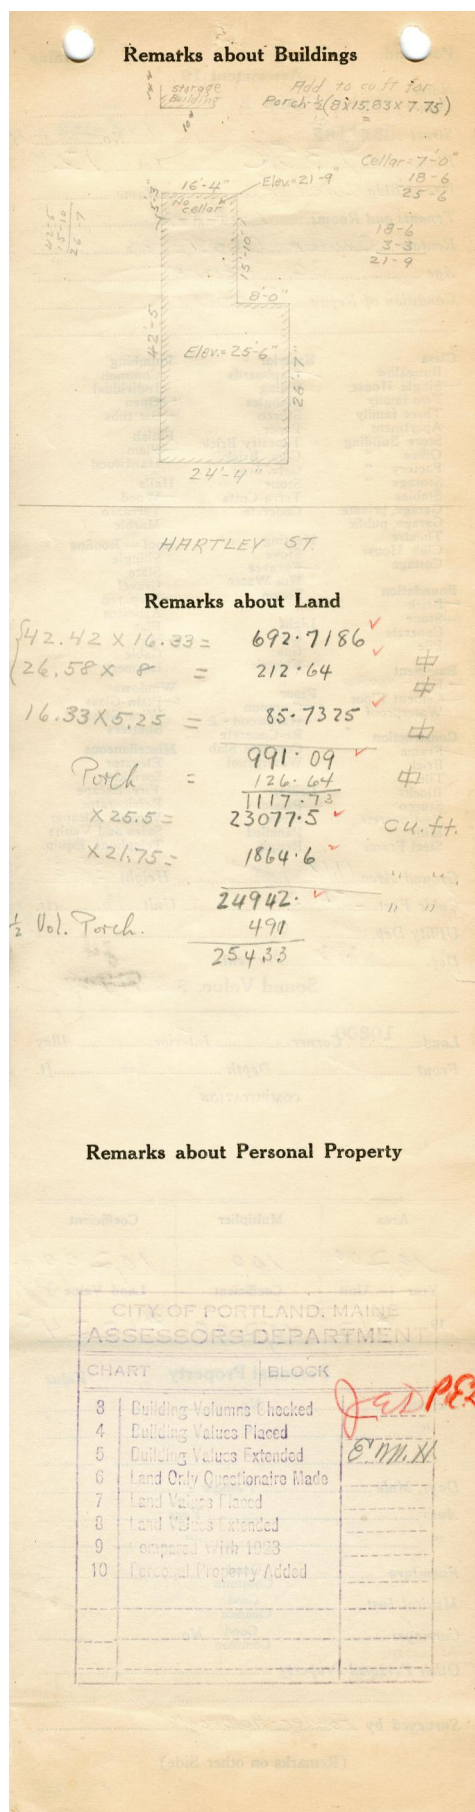 Remarks about Buildings
storage Building
10'
Add to cu.ft for
Porch ½(8x15.83x7.75)
=
Cellar=7'-0"
18-6
25-6
16'-4"
Elev.=21'-9"
5'-3"
No cellar
18-6
3-3
21-9
42-5
15-10
26-7
15'-10"
8'-0"
42'-5
Elev.=25'-6"
26'-7"
24'-4"
HARTLEY ST.
Remarks about Land
42.42 X 16.33 = 692.7186
26.58 X 8 = 212.64
16.33 X 5.25 = 85.7325
991.09
Porch = 126.64
1117.73
X 25.5 = 23077.5 cu.ft.
X 21.75 = 1864.6 " "
24942. " "
½ Vol. Porch. 491
25433
Remarks about Personal Property
CITY OF PORTLAND, MAINE
ASSESSORS DEPARTMENT
CHART BLOCK
3 Building Volumns Checked
4 Building Values Placed
5 Building Values Extended E.M.H.
6 Land Only Questionaire Made
7 Land Values Placed
8 Land Values Extended
9 Compared With 1923
10 Personal Property Added